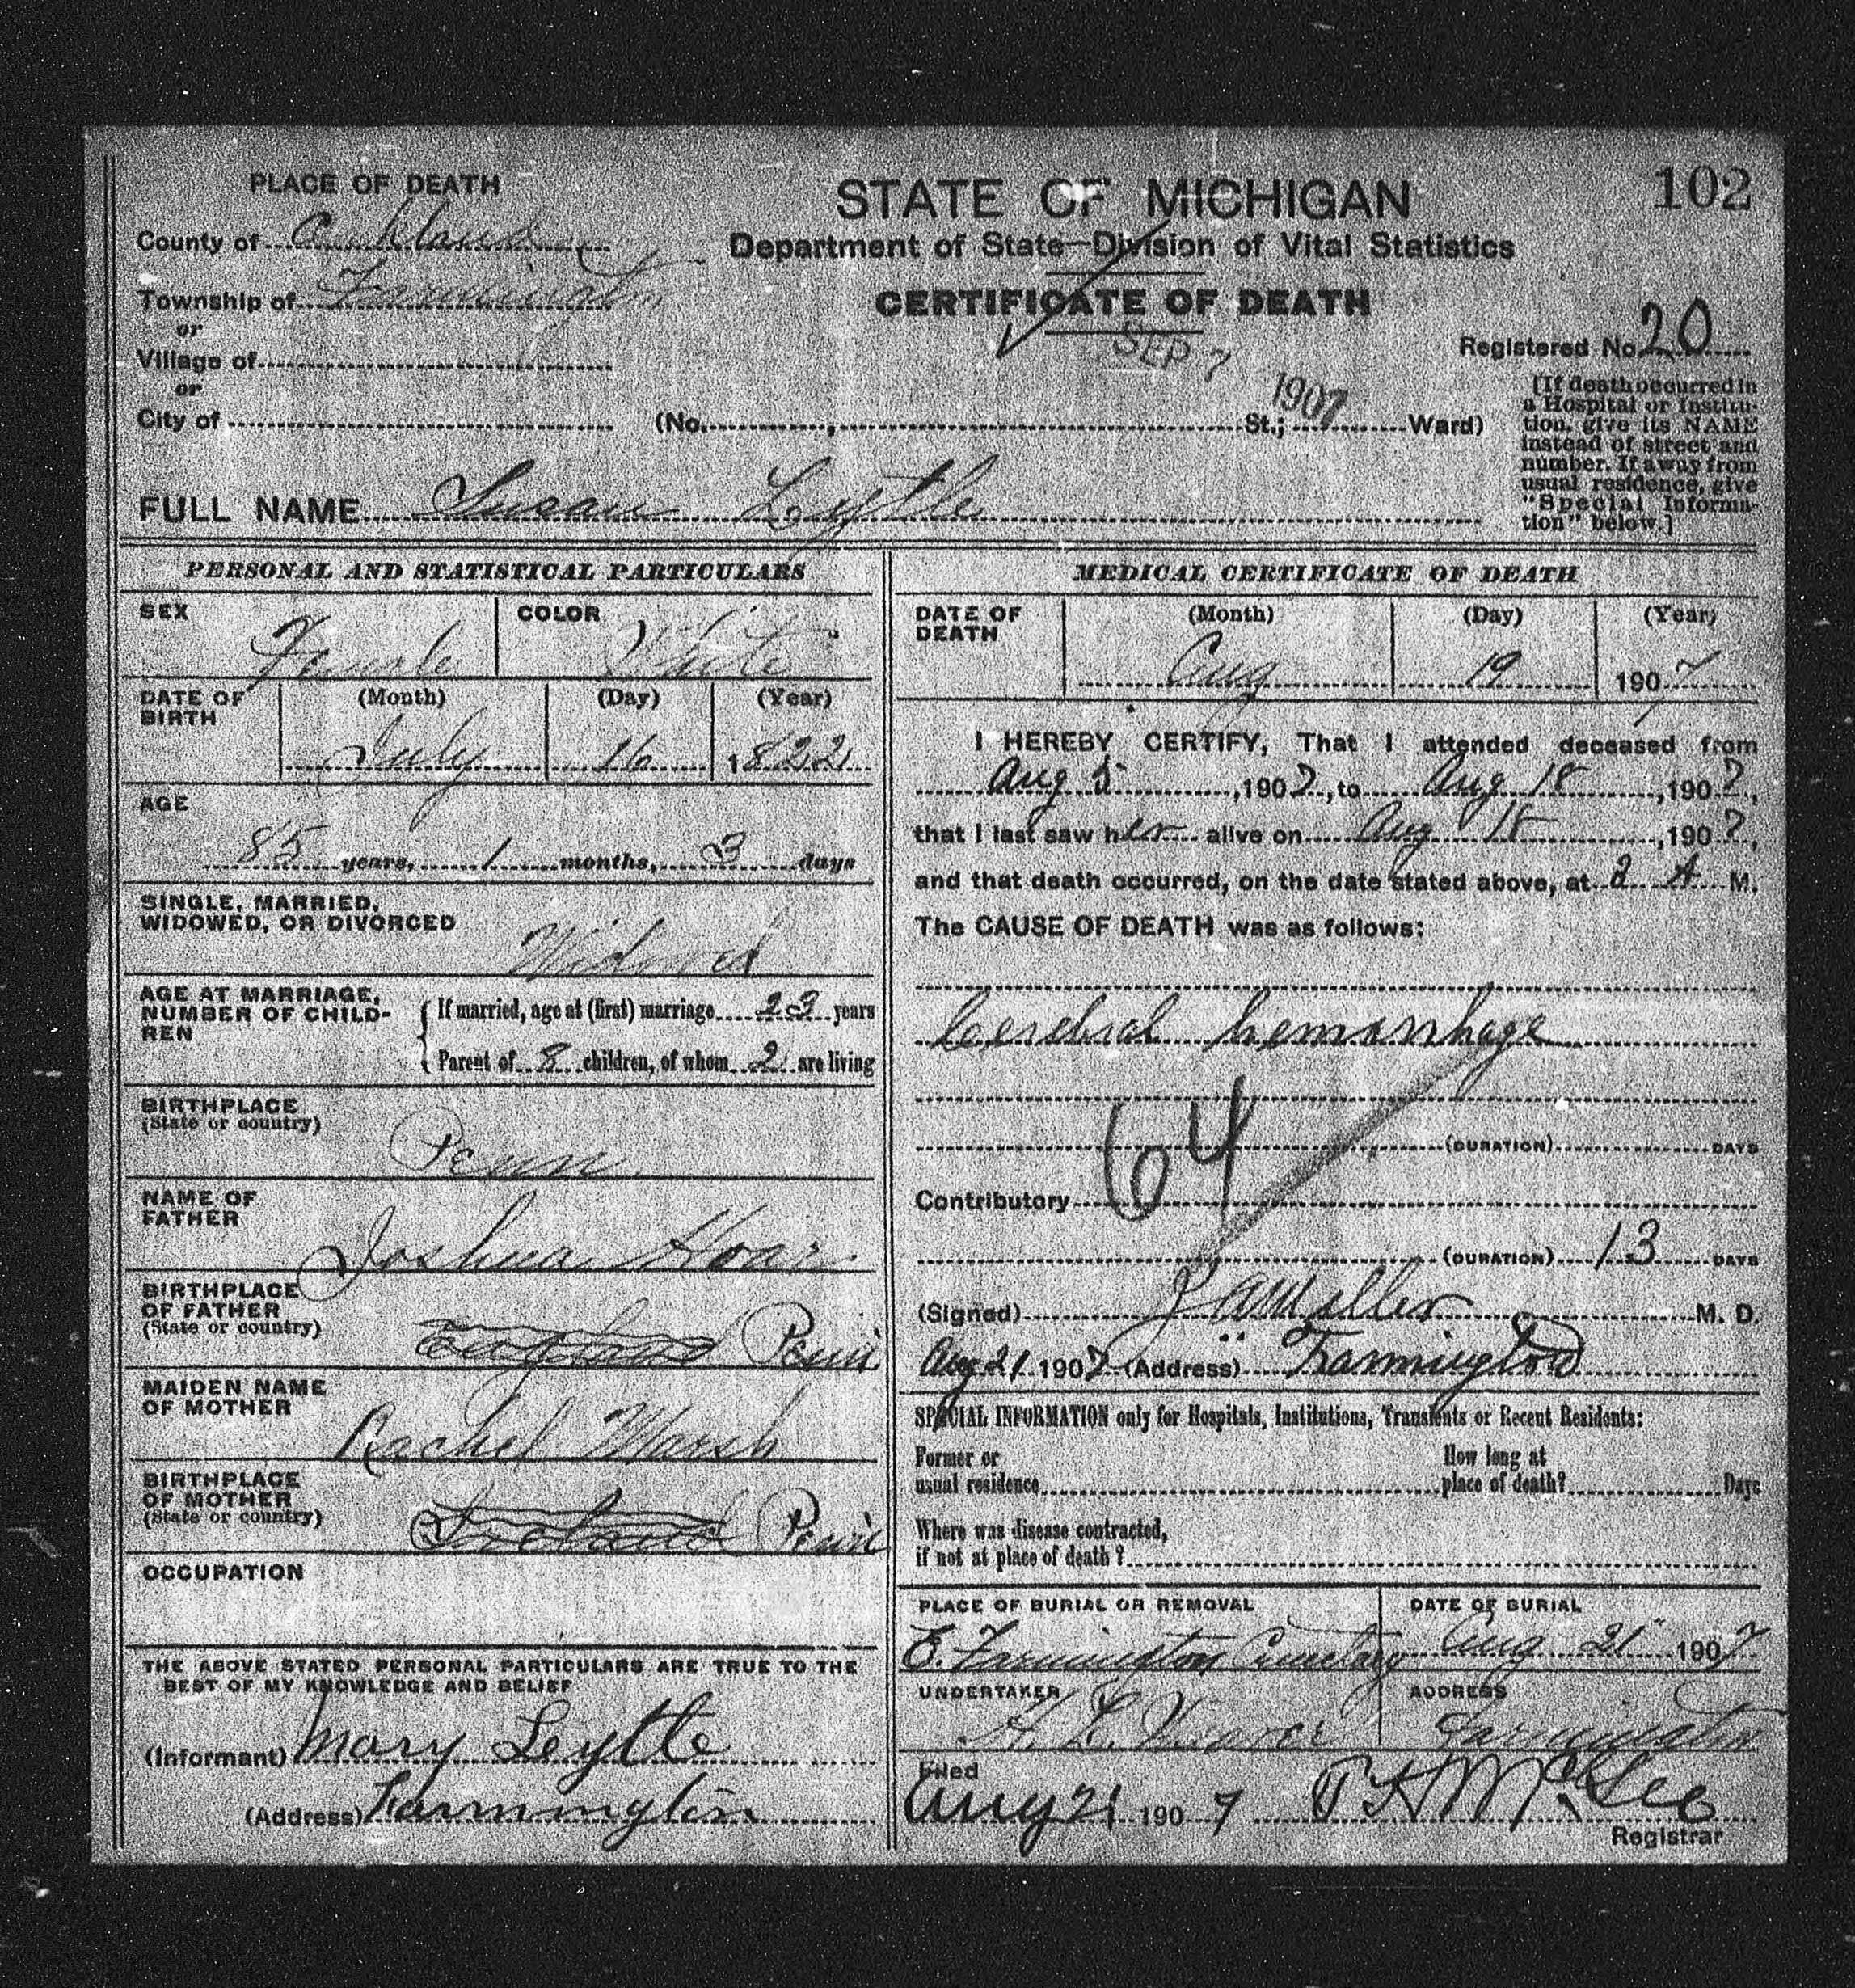 102
PLACE OF DEATH
STATE OF MICHIGAN
County of Oakland
Department of State—Division of Vital Statistics
Township of Farmington
CERTIFICATE OF DEATH
or
SEP 7 1907
Registered No. 20
Village of
or
City of (No. , St.; Ward)
[If death occurred in
a Hospital or Institu-
tion, give its NAME
instead of street and
number. If away from
usual residence, give
"Special Informa-
tion" below.]
FULL NAME Susan Lytle
PERSONAL AND STATISTICAL PARTICULARS
SEX Female COLOR White
DATE OF BIRTH (Month) July (Day) 16 (Year) 1822
AGE
85 years, 1 months, 3 days
SINGLE, MARRIED,
WIDOWED, OR DIVORCED Widowed
AGE AT MARRIAGE,
NUMBER OF CHILD-
REN
If married, age at (first) marriage 23 years
Parent of 8 children, of whom 2 are living
BIRTHPLACE
(State or country) Penn
NAME OF
FATHER Joshua Hoar
BIRTHPLACE
OF FATHER
(State or country) England Penn
MAIDEN NAME
OF MOTHER Rachel Marsh
BIRTHPLACE
OF MOTHER
(State or country) Ireland Penn
OCCUPATION
THE ABOVE STATED PERSONAL PARTICULARS ARE TRUE TO THE
BEST OF MY KNOWLEDGE AND BELIEF
(Informant) Mary Leytle
(Address) Farmington
MEDICAL CERTIFICATE OF DEATH
DATE OF DEATH (Month) Aug (Day) 19 (Year) 1907
I HEREBY CERTIFY, That I attended deceased from
Aug 5, 1907, to Aug 18, 1907,
that I last saw her alive on Aug 18, 1907,
and that death occurred, on the date stated above, at 2 A M.
The CAUSE OF DEATH was as follows:
Cerebral hemorrhage
64
(DURATION) DAYS
Contributory
(DURATION) 13 DAYS
(Signed) Miller M. D.
Aug 21 1907 (Address) Farmington
SPECIAL INFORMATION only for Hospitals, Institutions, Transients or Recent Residents:
Former or
usual residence
How long at
place of death? Days
Where was disease contracted,
if not at place of death?
PLACE OF BURIAL OR REMOVAL DATE OF BURIAL
E. Farmington Cemetary Aug 21 1907
UNDERTAKER ADDRESS
Weaver Farmington
Filed
Aug 21 1907 McGee
Registrar